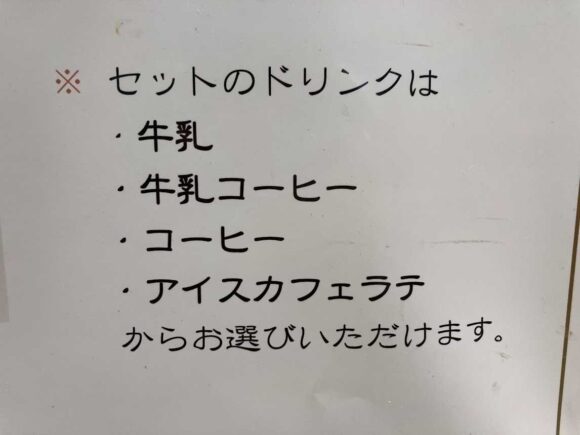 ※ セットのドリンクは
・牛乳
・牛乳コーヒー
・コーヒー
・アイスカフェラテ
からお選びいただけます。